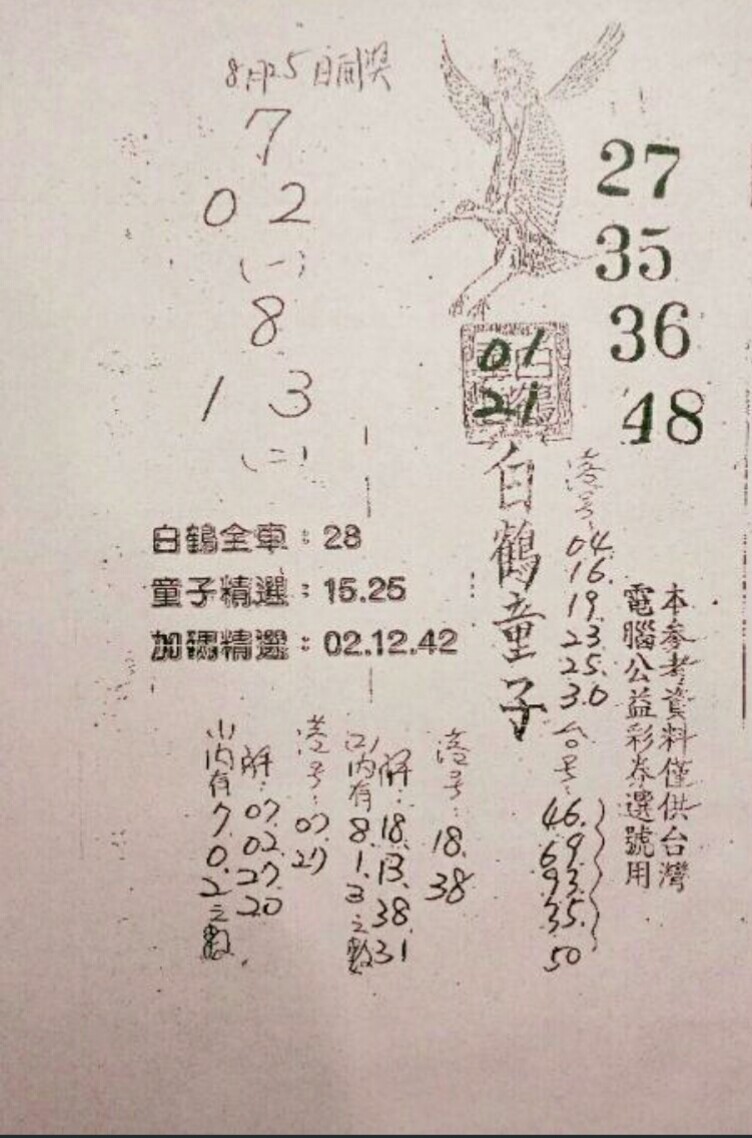 8月25日開獎
7
0 2
(一)
8
1 3
(二)
27
35
36
48
01
21
白鶴童子
港号:
04.
16.
19.
23.
25.
30
台号:
46.
69.
93.
35.
50
本参考資料僅供台灣
電腦公益彩券選號用
白鶴全車:28
童子精選:15.25
加碼精選:02.12.42
港号: 18. 38
解: 18. 13. 38. 31
(二)内有8.1.3之數
港号: 07. 27
解: 07. 02. 27. 20
(一)内有7.0.2之數.